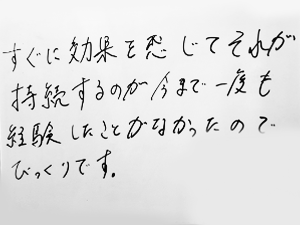 すぐに効果を感じてそれが
持続するのが今まで一度も
経験したことがなかったので
びっくりです。